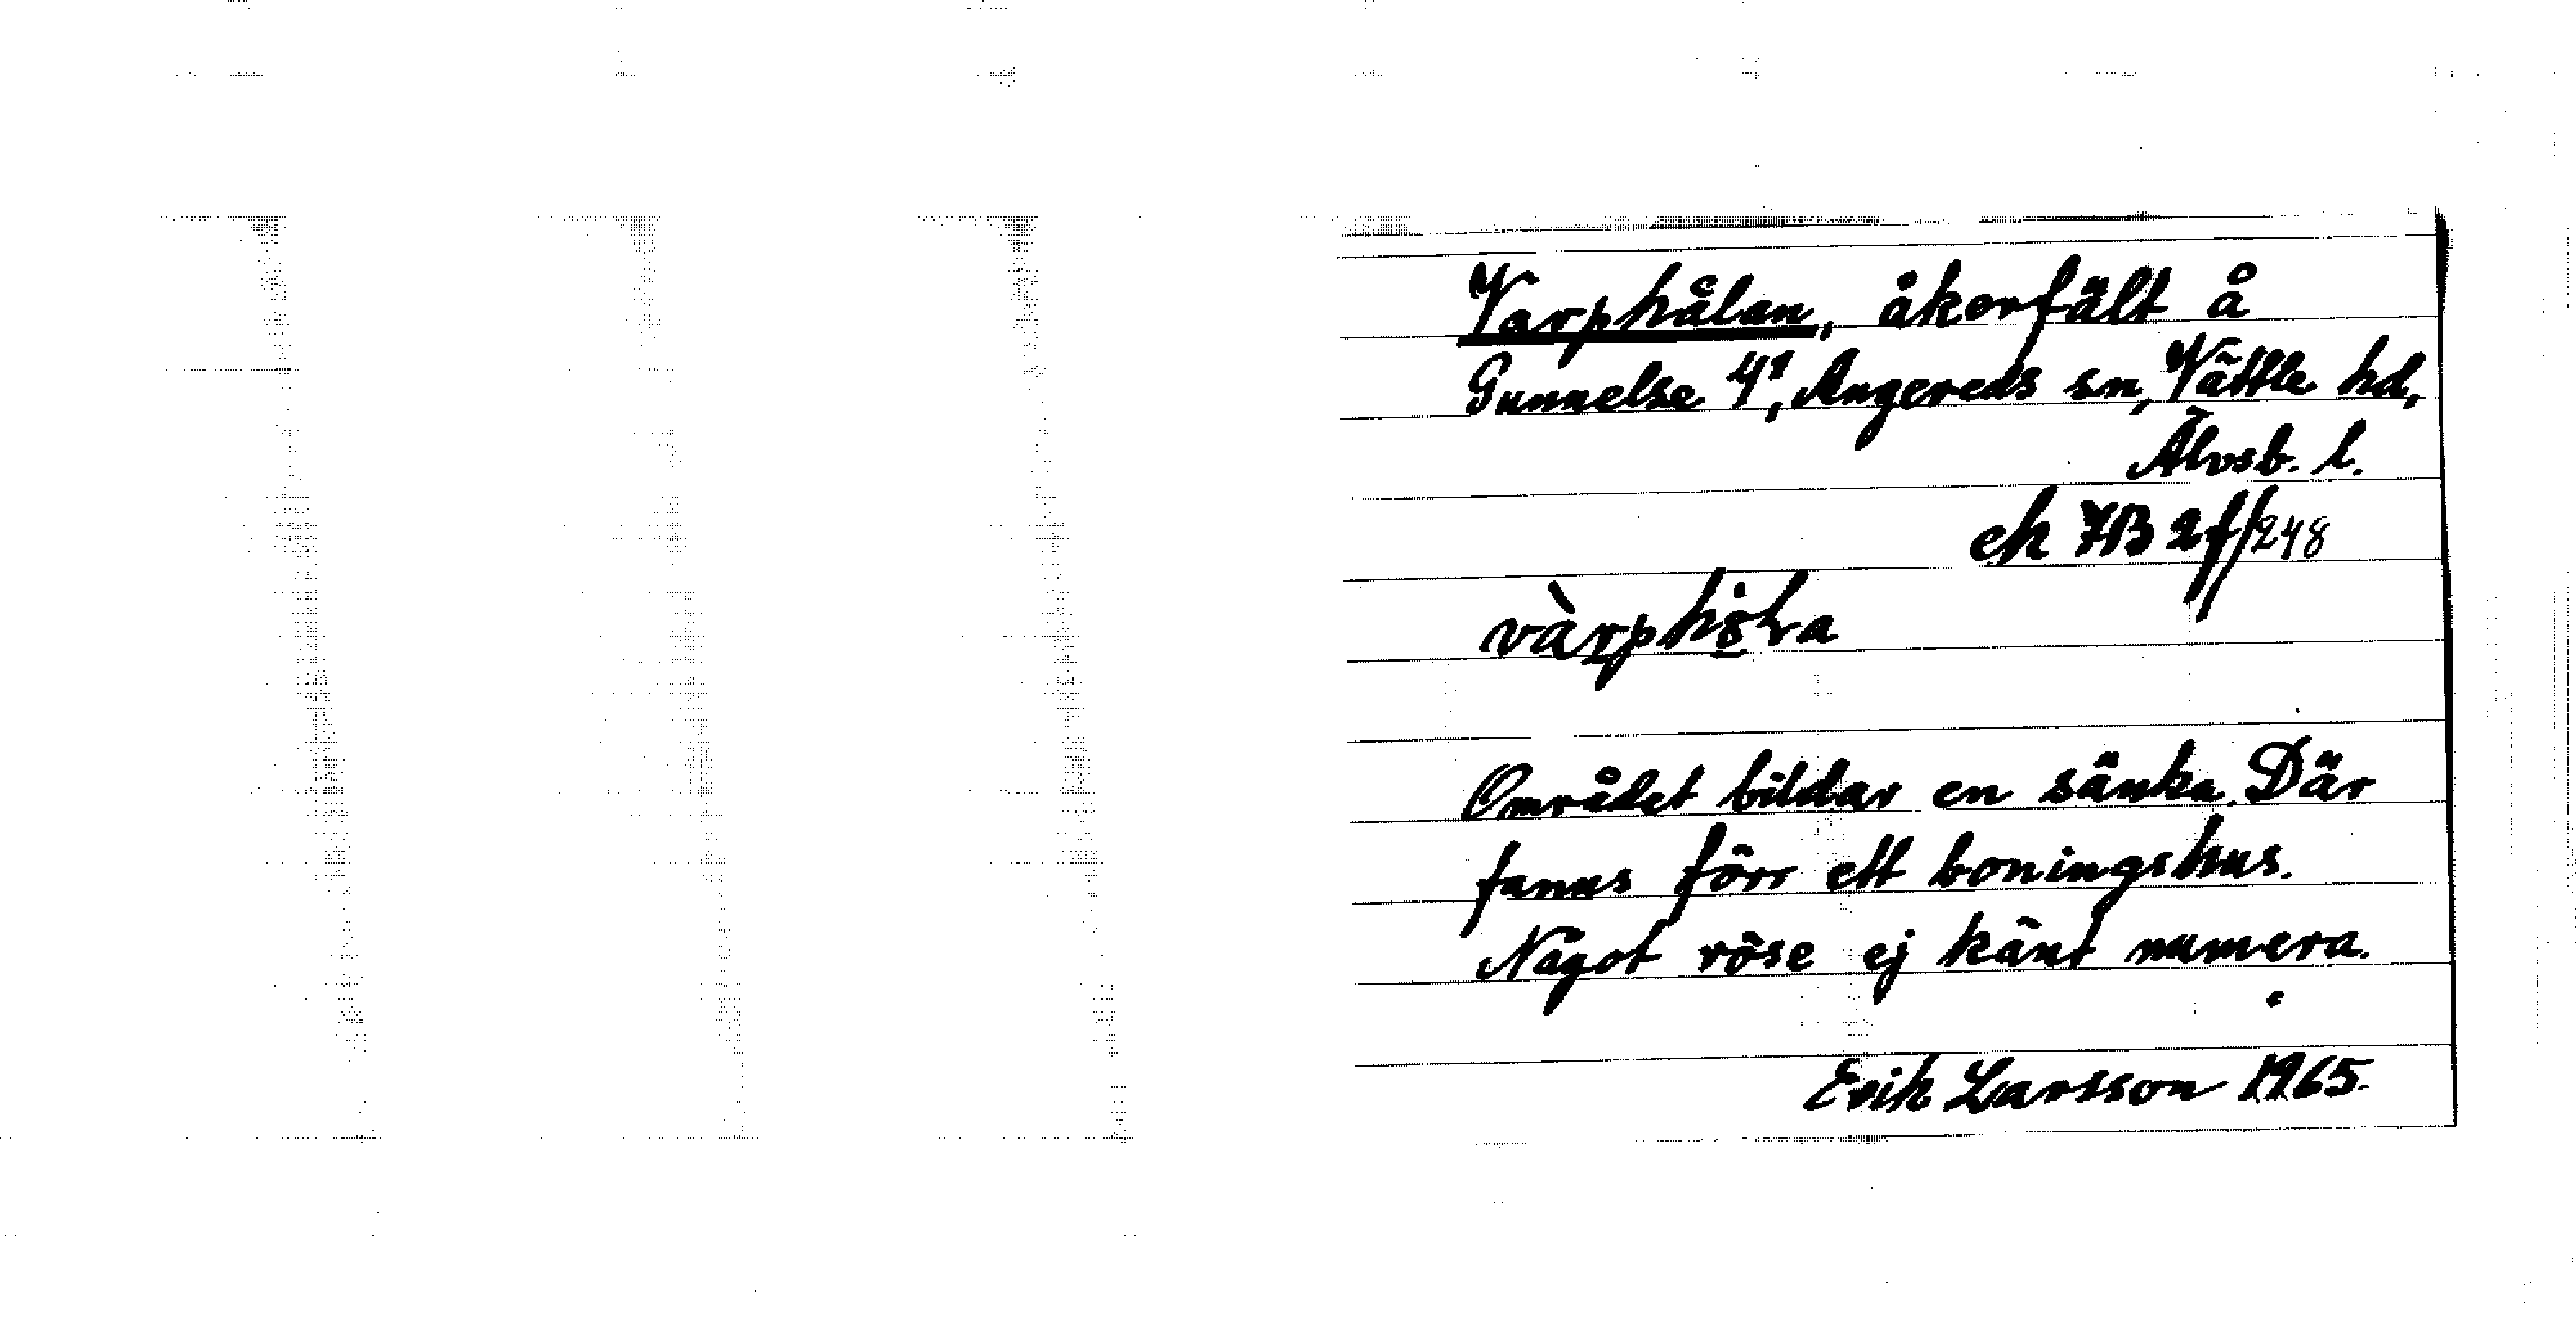 Varphålan, åkerfält å
Gunnelse 4¹, Angereds sn, Vättle hd,
Älvsb. l.
ek 7B 2f/248
Området bildar en sänka. Där
fanns förr ett boningshus.
Något röse ej känt numera.
Erik Larsson 1965.